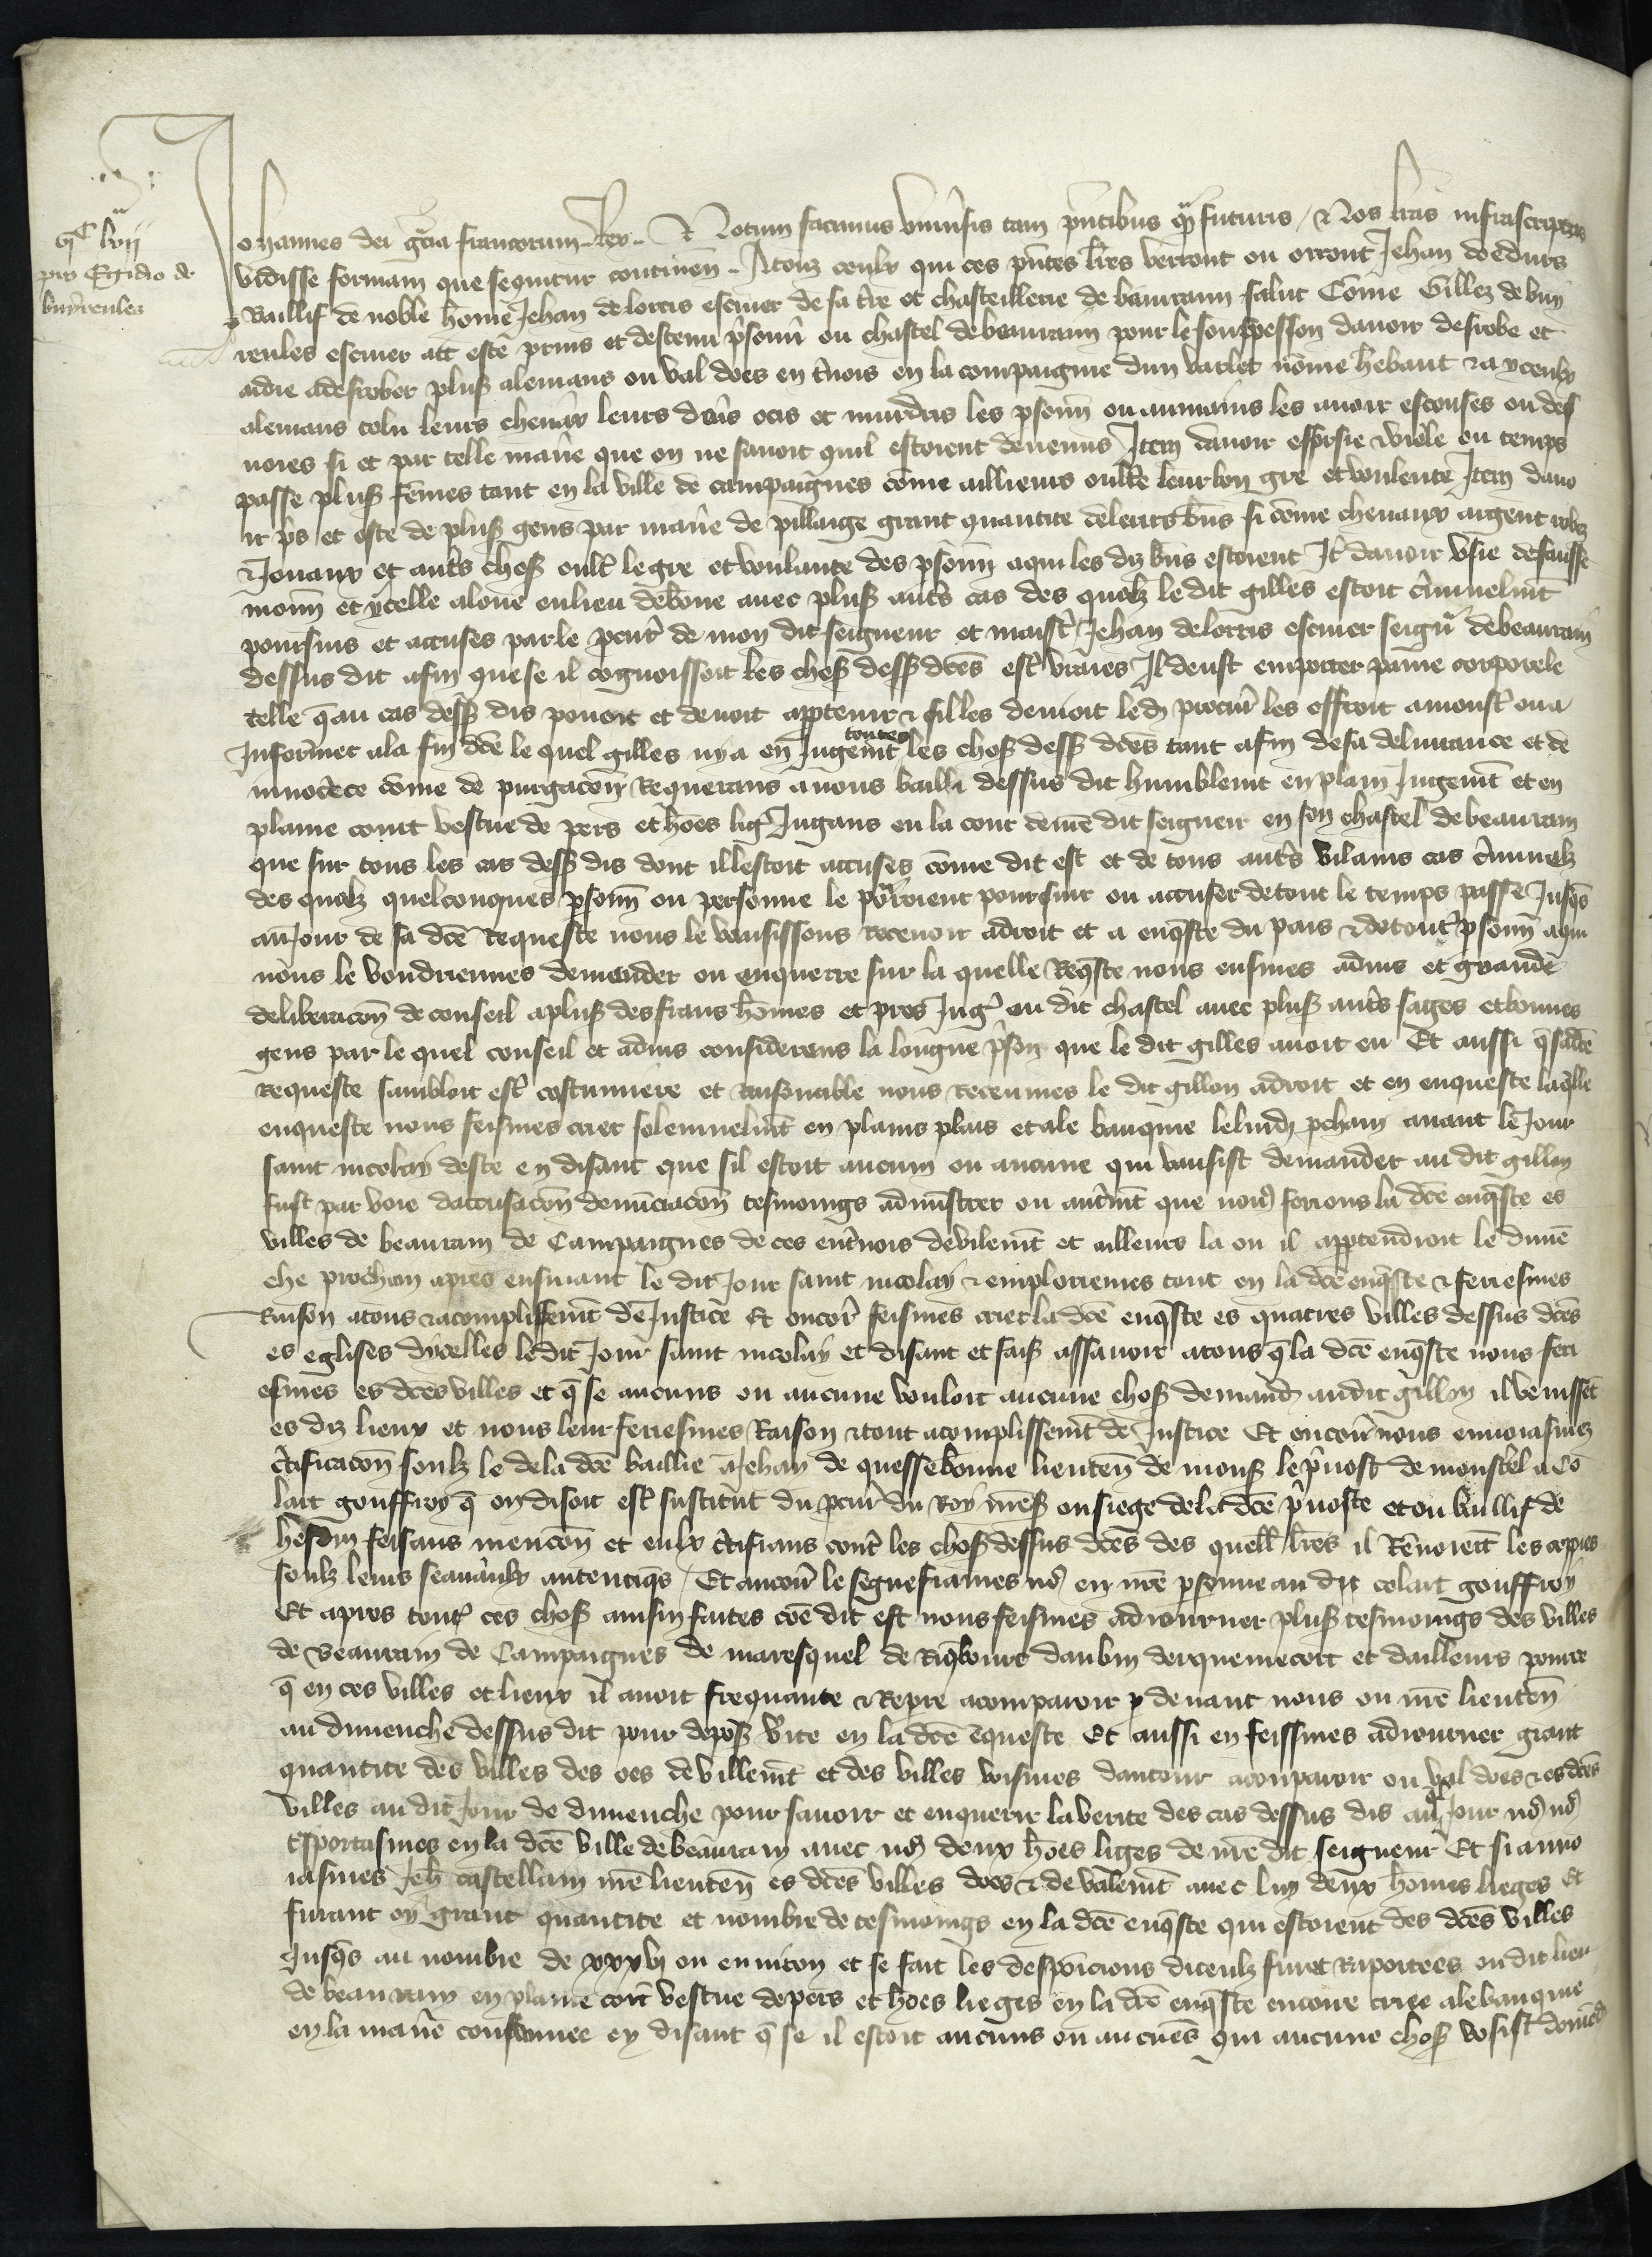 VIc lvii
pro Egidio de
buyreules
Johannes dei gr̃a francorum Rex Notum facimus vniu̾sis tam p̾ntibus q̃ futuris Nos lr̃as infrascriptas
vidisse formam que sequitur continen̾ Atouz ceulx qui ces p̾ntes lr̃es verront ou orront Jehan doedurs
Baillif de noble hõme Jehan de lorris escuier de sa t̾re et chastellerie de beaurain salut Cõme Gillez de buy
reules escuier ait esté prins et destenu p̾sonn̾ ou chastel de beaurain pour le souppesson dauoir desrobe et
aidie a desrober plus̾ alemans ou val does en t̾nois en la compaignie dun varlet nõme hebaut & a yceulx
alemans tolu leurs cheuaux leurs den̾s ocis et murdris les p̾sonn̾ ou aumains les auoir escouses ou des
uoies si et par telle maniẽ que on ne sauoit quil estoient deuenus Item dauoir esforsie & viole ou temps
passe plus̾ fẽmes tant en la ville de campaignes cõme ailleurs oultre leur bon gre et voulente Item dauo
ir p̾s et oste de plus̾ gens par maniẽ de pillaige grant quantite de leurs biens si cõme cheuaux argent robes
& Jouaux et aut̾s chos̾ oult̾ le gre et voulante des p̾sonn̾ a qui les diz biens estoient It̾ dauoir vsie de fausse
monn̾ et ycelle alouee en lieu de bõne auec plus̾ aut̾s cas des quelz le dit gilles estoit c̾minelmt̃
poursuis et accuses par le pcur̾ de mon dit seigneur et maist̾ Jehan de lorris escuier seign̾r de beaurain
dessus dit afin que se il cognoissoit les chos̾ dess̾ dc̃es est̾ vraies Il deust emporter paine corporele
telle q̃ au cas dess̾ dis pouoit et deuoit appartenir & sil les denioit led̾ procur̾ les offroit a monst̾ ou a
Informer a la fin dc̃e le quel gilles nya en Jugemt̃ toutes les chos̾ dess̾ dc̃es tant afin de sa deliurance et de
innocẽce cõme de purgacon̾ Requerans a nous bailli dessus dit humblemt̃ en plain Jugemt̃ et en
plaine court vestue de pers et hões lig̾ Jugans en la court de mẽ dit seigneir en son chastel de beaurain
que sur tous les cas dess̾ dis dont il lestoit accuses cõme dit est et de tous aut̾s vilains cas c̾minelz
des quelz quelconques p̾sonn̾ ou personne le porroient poursuir ou accuser de tout le temps passe Jusq̃s
au Jour de sa dc̃e Requeste nous le vausissons receuoir a droit et a enq̃ste du pais & de tout̾ p̾sonn̾ a qui
nous le voudriennes demander ou enquerre sur la quelle Req̃ste nous eusmes aduis et grande
deliberacon̾ de conseil a plus̾ des frans hõmes et pers Jug̾ ou dit chastel auec plus̾ aut̾s sages et bonnes
gens par le quel conseil et aduis considerens la longue p̾son que le dit gilles auoit eu Et aussi q̃ sa dc̃e
Requeste sambloit est̾ coustumiere et Raisonable nous receumes le dit gillon a droit et en enqueste laq̃lle
enqueste nous feismes crier solennelmt̃ en plains plais et a le banquie le lundi pchain auant le Jour
saint nicolay deste en disant que sil estoit aucum ou aucune qui vausist demander au dit gillon
fust par voie daccusacon̾ denũciacon̾ tesmoings admistrer ou aut̾mt̃ que no9 feriens la dc̃e enq̃ste es
villes de beaurain de Campaignes de ces en t̾nois de vilemt̃ et ailleurs la ou il appartendroit le dimẽ
che prochain apres ensuiant le dit Jour saint nicolay & emplorriemes tout en la dc̃e enq̃ste & feriesmes
Raison a tous & acomplissemt̃ de Justice Et encor̾ feismes crier la dc̃e enq̃ste es quatres villes dessus dc̃es
es eglises dicelles le dit Jour saint nicolay et disant et fais̾ assauoir a tous q̃ la dc̃e enq̃ste nous feri
esmes es dc̃es villes et q̃ se aucuns ou aucune vouloit aucune chos̾ demand̾ au dit gillon il venissẽt
es diz lieux et nous leur feriesmes Raison & tout acomplissemt̃ de Justice Et encor̾ nous enuoiasmes
c̾tificacon̾ soulz le de la dc̃e baillie a Jehan de quessebonne lieuten̾ de mons̾ le p̾uost de monst̾el a Co
lart gouffroy q̃ on disoit est̾ sustitut du pcur̾ du Roy nr̃es̾ ou siege de la dc̃e p̾uoste et ou baillif de
hesdin feisans mencon̾ et eulx c̾tifians cont̾ les chos̾ dessus dc̃es des quell̾ lr̃es il Rẽuoiert̃ les coppies
soulz leurs seauaulx autentiq̃s Et ancor̾ le segnefiames no9 en nr̃e p̾sonne au dit colart gouffroy
Et apres tout̾ ces chos̾ ainsin faites cõe dit est nous feismes adiourner plus̾ tesmoings des villes
de beaurain de Campaignes de maresquel de Riq̃bourt daubin derquemecort et dailleurs pource
q̃ en ces villes et lieux il auoit frequante & Repre a comparoir p deuant nous ou nr̃e lieuten̾
au dimenche dessus dit pour depos̾ v̾ite en la dc̃e ẽqueste Et aussi en feissmes adiourner grant
quantite des villes des oes de villemt̃ et des villes voisines dantour a conparoir ou val does & es dc̃es
villes au dit Jour de dimenche pour sauoir et enquerir la verite des cas dessus dis auq̃l Jour no9 no9
t̾sportasmes en la dc̃e ville de beaurain auec no9 deux hões liges de nr̃e dit seigneur Et si anuo
iasmes Jeh̾ castellain nr̃e lieuten̾ es dc̃es villes does & de valemt̃ auec luy deux hõmes lieges Et
furant oy grant quantite et nombre de tesmoings en la dc̃e enq̃ste qui estoient des dc̃es villes
Jusq̃s au nombre de xxxvj ou enuiron et se fait les desposicions diceulz furẽt Raportees ou dit lieu
de beaurain en plaine cort vestue de pers et hões lieges en la dc̃e enq̃ste encore criee a le banquie
en la maniẽ coustumee en disant q̃ se il estoit aucuns ou aucunes qui aucune chos̾ vosist demãd̾